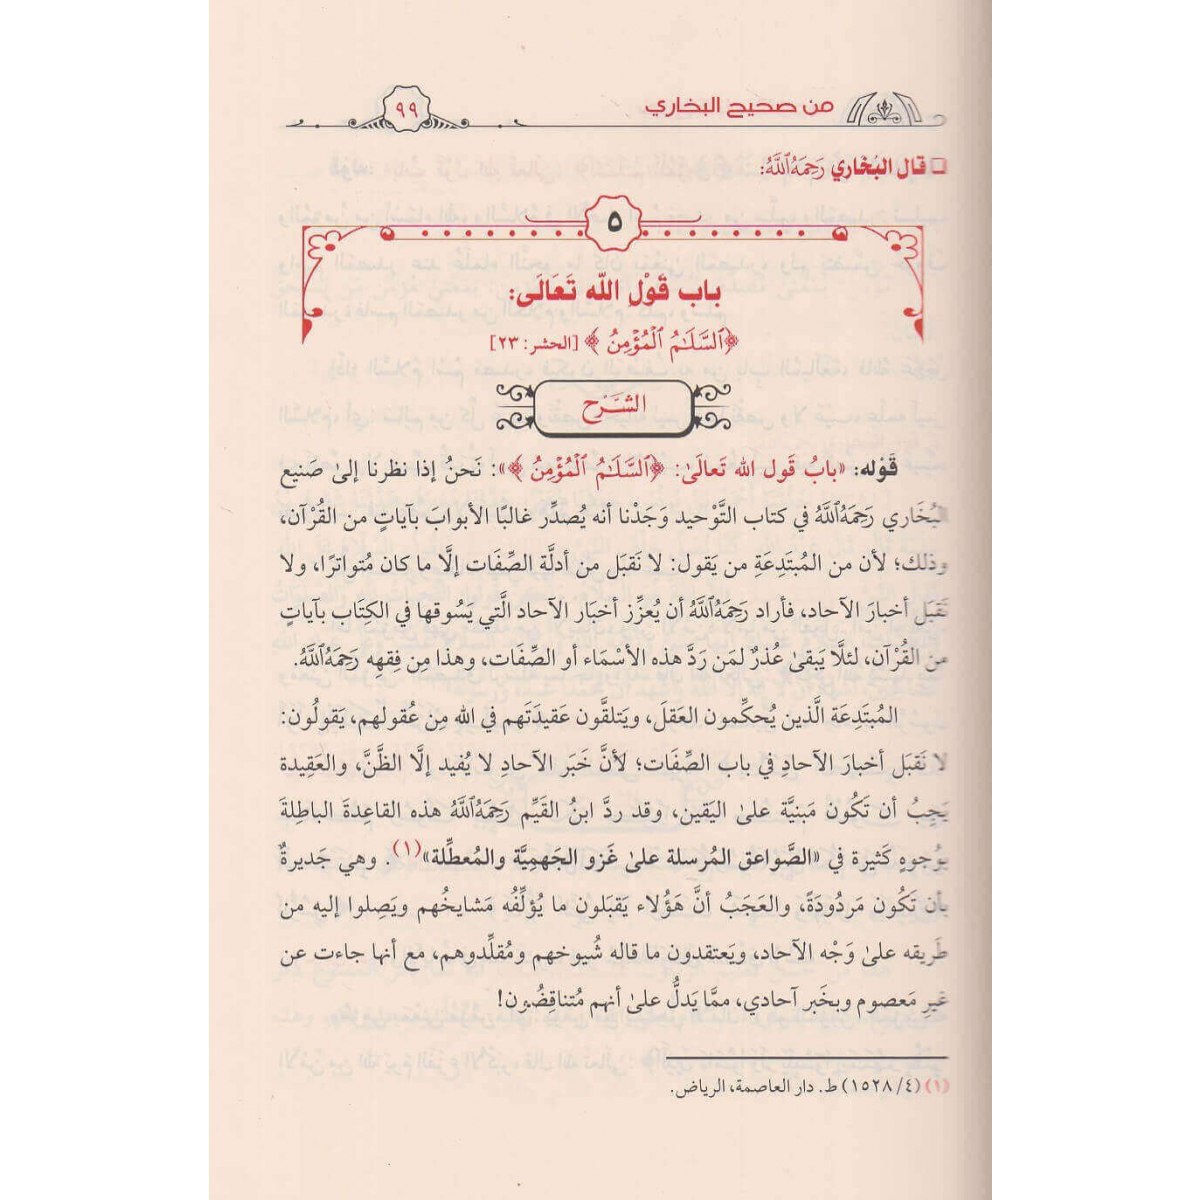 من صحيح البخاري
٩٩
قال البُخَاري رَحِمَهُ ٱللَّهُ:
٥
باب قَوْلِ اللّه تَعَالَى:
﴿ٱلسَّلَـٰمُ ٱلْمُؤْمِنُ﴾ [الحشر: ٢٣]
الشَّرْح
قَوْله: «بابُ قَول الله تَعالَىٰ: ﴿ٱلسَّلَـٰمُ ٱلْمُؤْمِنُ﴾»: نَحنُ إذا نظرنا إلىٰ صَنيع
البُخَاري رَحِمَهُ ٱللَّهُ في كتاب التَّوْحيد وَجَدْنا أنه يُصدِّر غالبًا الأبوابَ بآياتٍ من القُرْآن،
وذلك؛ لأن من المُبتَدِعَةِ من يَقول: لا نَقبَل من أدلَّة الصِّفَات إلَّا ما كان مُتواترًا، ولا
نَقبَل أخبارَ الآحاد، فأراد رَحِمَهُ ٱللَّهُ أن يُعزِّز أخبَار الآحاد الَّتي يَسُوقها في الكِتَاب بآياتٍ
من القُرْآن، لئلَّا يَبقىٰ عُذرٌ لمَن رَدَّ هذه الأسْمَاء أو الصِّفَات، وهذا مِن فِقهِه رَحِمَهُ ٱللَّهُ.
المُبتَدِعَة الَّذين يُحكِّمون العَقلَ، ويَتلقَّون عَقيدَتَهم في الله مِن عُقولهم، يَقولُون:
لا نَقبَل أخبارَ الآحادِ في باب الصِّفَات؛ لأنَّ خَبَر الآحادِ لا يُفيد إلَّا الظَّنَّ، والعَقِيدة
يَجِبُ أن تَكُون مَبنيَّة علىٰ اليَقين، وقد ردَّ ابنُ القَيِّم رَحِمَهُ ٱللَّهُ هذه القاعِدةَ الباطِلةَ
بوُجوهٍ كَثيرة في «الصَّواعق المُرسلة علىٰ غَزو الجَهميَّة والمُعطِّلة»(١). وهي جَديرةٌ
بأن تَكُون مَردُودَةً، والعَجَبُ أنَّ هَؤُلاء يَقبَلون ما يُؤلِّفُه مَشايخُهم ويَصِلوا إليه من
طَريقه علىٰ وَجْه الآحاد، ويَعتقدون ما قاله شُيوخهم ومُقلِّدوهم، مع أنها جاءت عن
غيرِ مَعصوم وبخَبر آحادي، ممَّا يَدلُّ علىٰ أنهم مُتناقِضُون!
(١) (٤/ ١٥٢٨) ط. دار العاصمة، الرياض.